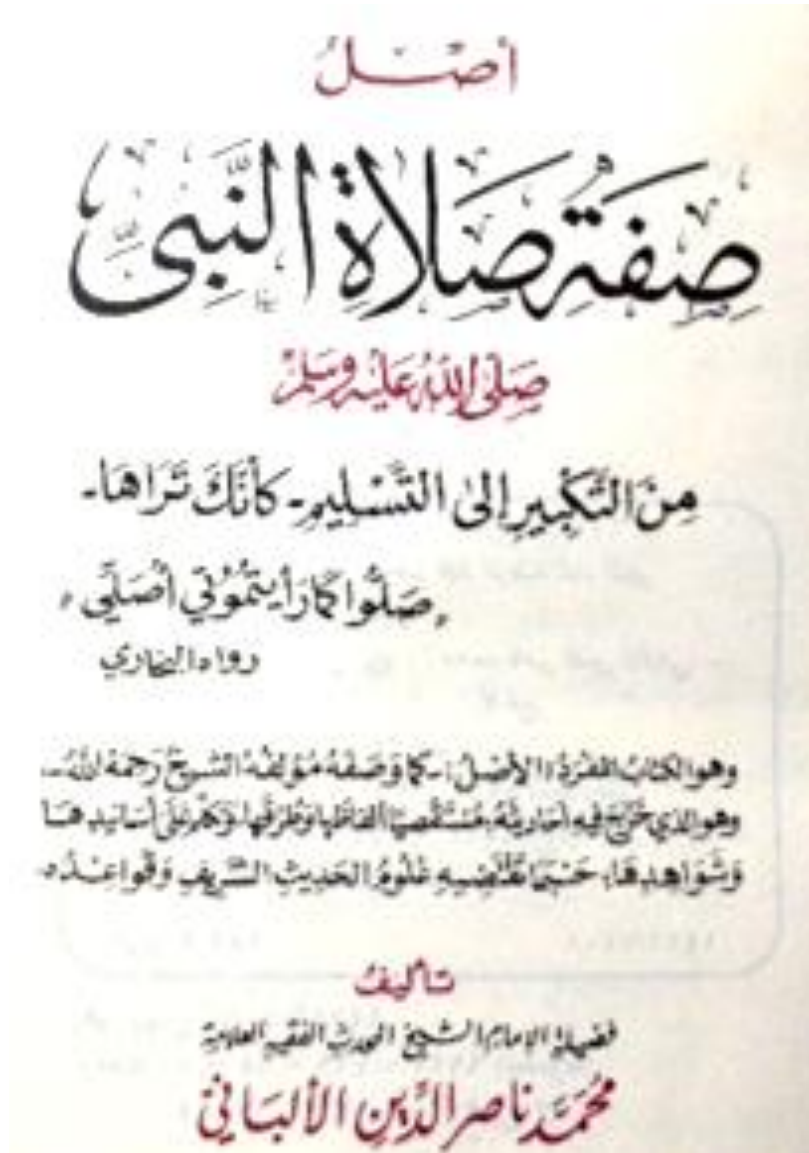 أصل
صِفَةِ صَلَاةِ النَّبِيِّ
صَلَّى اللَّهُ عَلَيْهِ وَسَلَّمَ
مِنَ التَّكْبِيرِ إِلَى التَّسْلِيمِ - كَأَنَّكَ تَرَاهَا -
«صَلُّوا كَمَا رَأَيْتُمُونِي أُصَلِّي»
رواه البخاري
وهو الكتاب المفرد (الأصل) - كما وصفه مؤلفه الشيخ رحمه الله -
وهو الذي خرّج فيه أحاديثه، مستقصياً ألفاظها وطرقها، وتكلم على أسانيدها
وشواهدها، حسبما تقتضيه علوم الحديث الشريف وقواعده
تأليف
فضيلة الإمام الشيخ المحدث الفقيه العلامة
محمد ناصر الدين الألباني